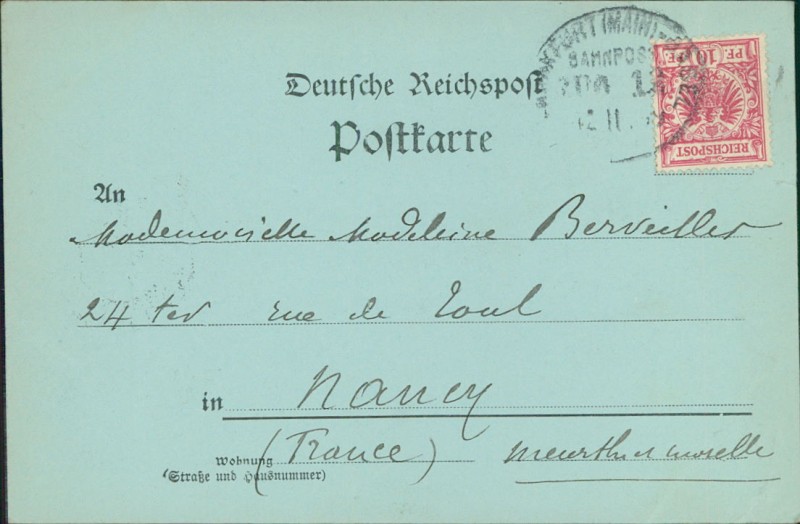 FURT (MAIN)
BAHNPOST
10 PF. PF.
REICHSPOST
Deutsche Reichspost
Postkarte
An
Mademoiselle Madeleine Berveiller
24 ter rue de Toul
in Nancy
(France) Meurthe et moselle
Wohnung
(Straße und Hausnummer)